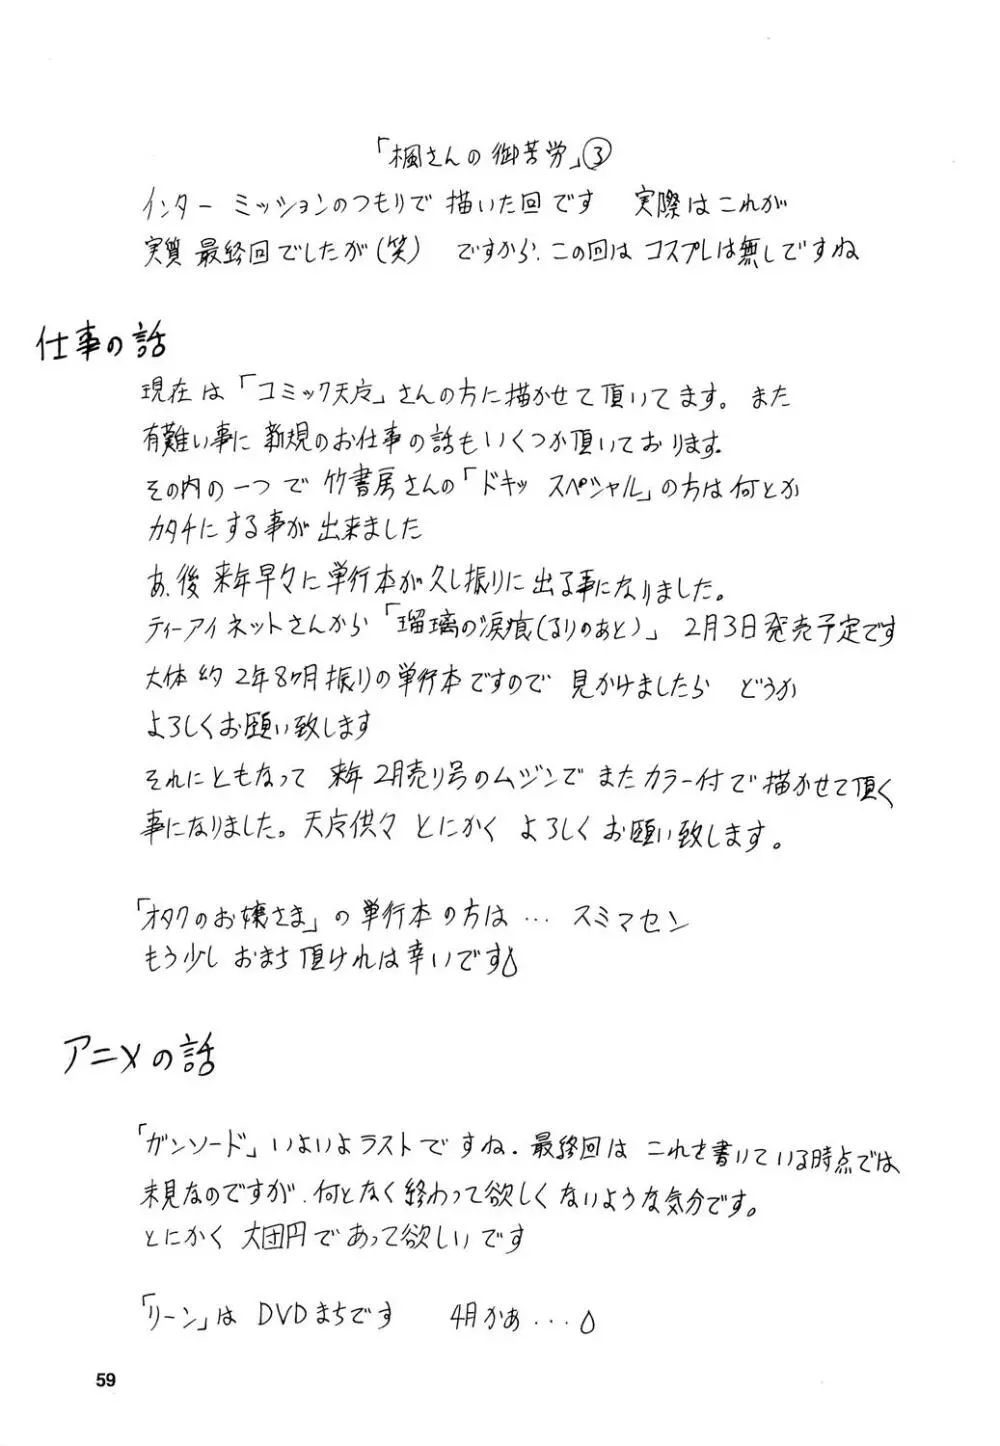 「楓さんの御苦労」③
インターミッションのつもりで描いた回です　実際はこれが
実質最終回でしたが(笑)　ですから、この回はコスプレは無しですね
仕事の話
現在は「コミック天广」さんの方に描かせて頂いてます。また
有難い事に新規のお仕事の話もいくつか頂いております。
その内の一つで竹書房さんの「ドキッ スペシャル」の方は何とか
カタチにする事が出来ました
あ、後来年早々に単行本が久し振りに出る事になりました。
ティーアイネットさんから「瑠璃の涙痕(るりのあと)」2月3日発売予定です
大体約2年8ヶ月振りの単行本ですので見かけましたら　どうか
よろしくお願い致します
それにともなって来年2月売り号のムジンでまたカラー付で描かせて頂く
事になりました。天广供々とにかくよろしくお願い致します。
「オタクのお嬢さま」の単行本の方は…スミマセン
もう少しおまち頂ければ幸いです
アニメの話
「ガンソード」いよいよラストですね．最終回はこれを書いている時点では
未見なのですが、何となく終わって欲しくないような気分です。
とにかく大団円であって欲しいです
「リーン」はDVDまちです　4月かぁ...
59